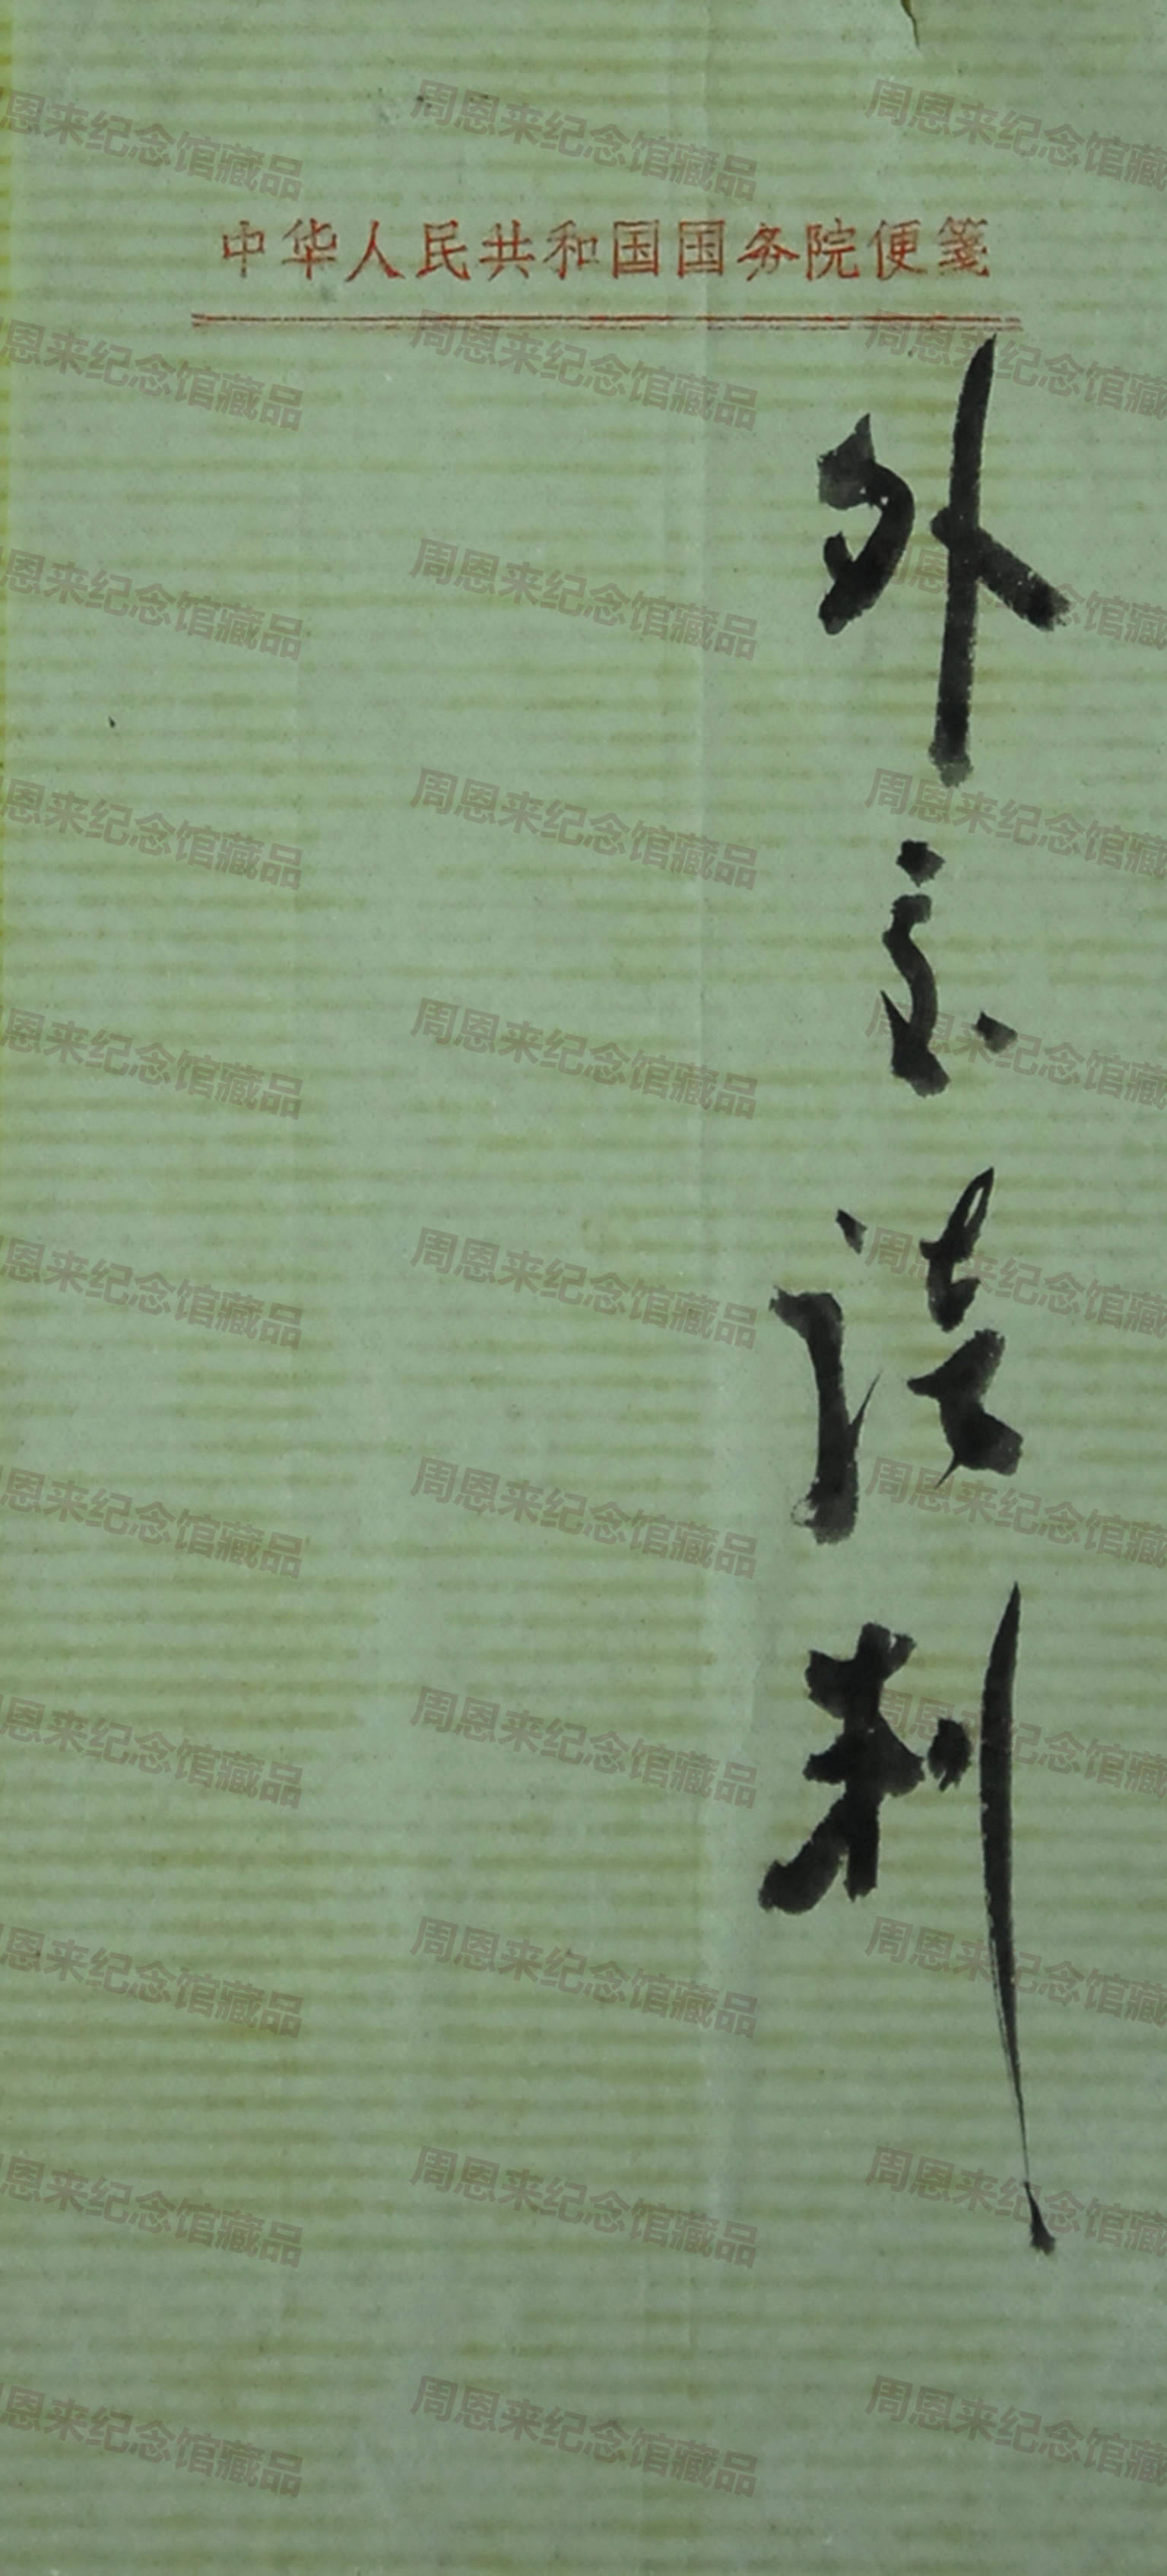 中华人民共和国国务院便笺
外交谈判
周恩来纪念馆藏品